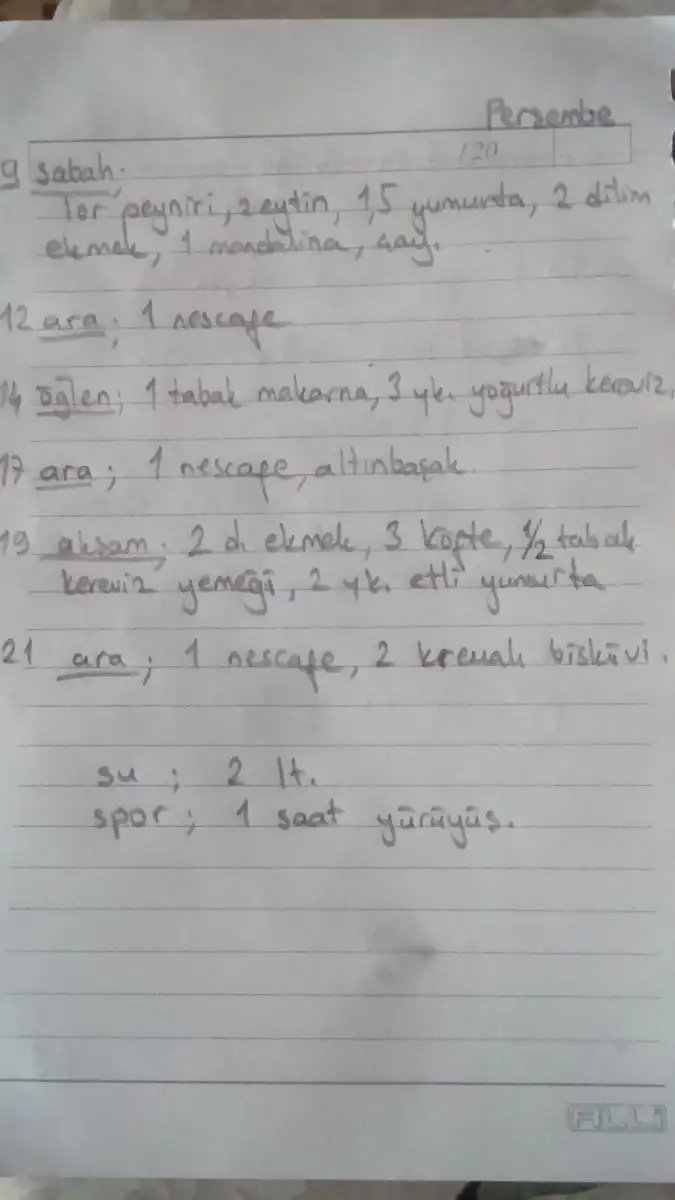 Perşembe
120
9 sabah;
Tor peyniri, zeytin, 1,5 yumurta, 2 dilim
ekmek, 1 mandalina, çay.
12 ara; 1 nescafe
14 öğlen; 1 tabak makarna, 3 yk. yoğurtlu kereviz,
17 ara; 1 nescafe, altınbaşak.
19 akşam; 2 di ekmek, 3 köfte, 1/2 tabak
kereviz yemeği, 2 yk. etli yumurta
21 ara; 1 nescafe, 2 kremalı bisküvi.
su ; 2 lt.
spor; 1 saat yürüyüş.